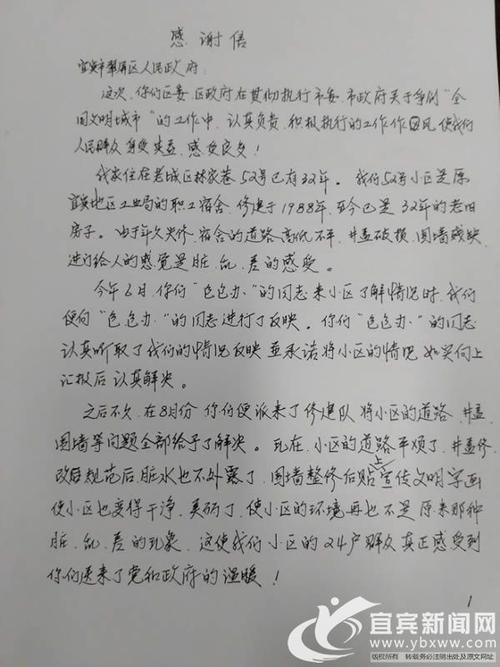 感谢信
宜宾市翠屏区人民政府:
这次,你们区委、区政府在贯彻执行市委、市政府关于争创“全
国文明城市”的工作中,认真负责,积极执行的工作作风,使我们
人民群众享受实益,感受良多!
我家住在老城区林家巷52号已有32年。我们52号小区是原
宜宾地区工业局的职工宿舍,修建于1988年,至今已是32年的老旧
房子。由于年久失修,宿舍的道路高低不平,井盖破损,围墙残映,
进门给人的感觉是脏、乱、差的感受。
今年6月,你们“创办”的同志来小区了解情况时,我们
便向“创办”的同志进行了反映。你们“创办”的同志
认真听取了我们的情况反映並承诺将小区的情况如实向上
汇报后认真解决。
之后不久,在8月份你们便派来了修建队将小区的道路、井盖、
围墙等问题全部给予了解决。现在,小区的道路平顺了,井盖修
改后规范后,脏水也不外露了,围墙整修后贴上宣传文明字画
使小区也变得干净、美丽了,使小区的环境再也不是原来那种
脏、乱、差的现象,这使我们小区的24户群众真正感受到
你们送来了党和政府的温暖!
1
宜宾新闻网
www.ybxww.com
版权所有 转载务必注明出处及原文网址